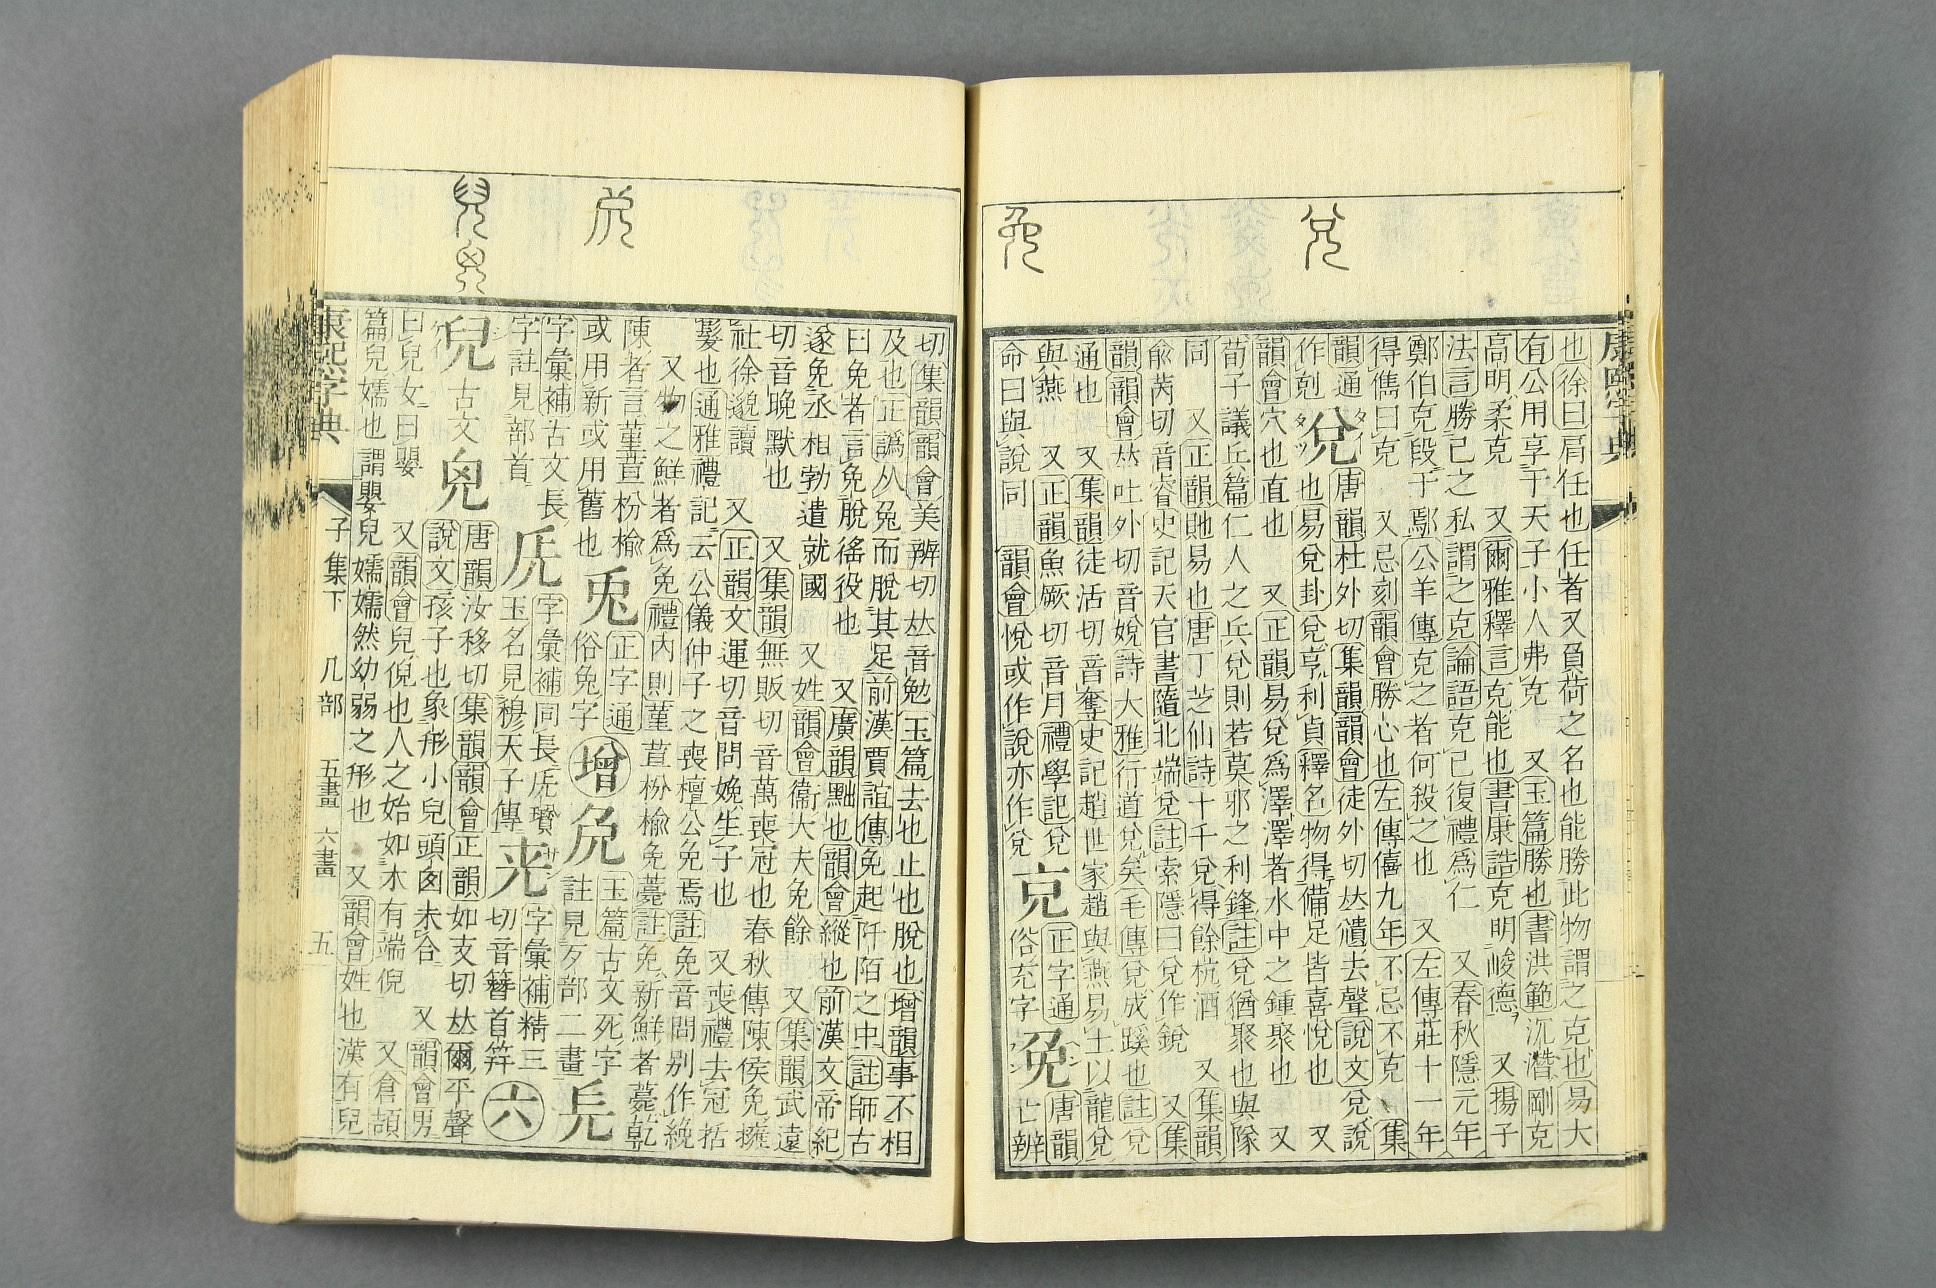 康熙字典
兌
免
也徐曰肩任也任者又負荷之名也能勝此物謂之克也易大
有公用享于天子小人弗克 又玉篇勝也書洪範沉潛剛克
高明柔克 又爾雅釋言克能也書康誥克明峻德 又揚子
法言勝己之私謂之克論語克己復禮爲仁 又春秋隱元年
鄭伯克段于鄢公羊傳克之者何殺之也 又左傳莊十一年
得儁曰克 又忌刻韻會勝心也左傳僖九年不忌不克 集
韻通作剋
兌 唐韻杜外切集韻韻會徒外切𠀤頹去聲說文兌說
也易兌卦兌亨利貞釋名物得備足皆喜悅也 又
韻會穴也直也 又正韻易兌爲澤澤者水中之鍾聚也 又
荀子議兵篇仁人之兵兌則若莫邪之利鋒註兌猶聚也與隊
同 又正韻貤易也唐丁芝仙詩十千兌得餘杭酒 又集韻
兪芮切音睿史記天官書隨北端兌註索隱曰兌作銳 又集
韻韻會𠀤吐外切音娧詩大雅行道兌矣毛傳兌成蹊也註兌
通也 又集韻徒活切音奪史記趙世家趙與燕易土以龍兌
與燕 又正韻魚厥切音月禮學記兌
命曰與說同 韻會悅或作說亦作兌
正字通俗充字
免 唐韻亡辨
免
兒
切集韻韻會美辨切𠀤音勉玉篇去也止也脫也增韻事不相
及也正譌从兔而脫其足前漢賈誼傳免起阡陌之中註師古
曰免者言免脫徭役也 又廣韻黜也韻會縱也前漢文帝紀
遂免丞相勃遣就國 又姓韻會衞大夫免餘 又集韻武遠
切音晚默也 又集韻無販切音萬喪冠也春秋傳陳侯免擁
社徐邈讀 又正韻文運切音問娩生子也 又喪禮去冠括
髮也通雅禮記云公儀仲子之喪檀公免焉註免音問别作絻
又物之鮮者爲免禮內則菫荁枌楡免薧註免新鮮者薧乾
陳者言菫荁枌楡
或用新或用舊也
兎 正字通俗兔字
增
玉篇古文死字
註見歹部二畫
字彙補古文長
字註見部首
字彙補同長虎璸
玉名見穆天子傳
字彙補精三
切音簪首笄
六
兒 古文 唐韻汝移切集韻韻會正韻如支切𠀤爾平聲
說文孩子也象形小兒頭囟未合 又韻會男
曰兒女曰嬰 又韻會兒倪也人之始如木有端倪 又倉頡
篇兒嬬也謂嬰兒嬬嬬然幼弱之形也 又韻會姓也漢有兒
康熙字典 子集下 儿部 五畫 六畫 五